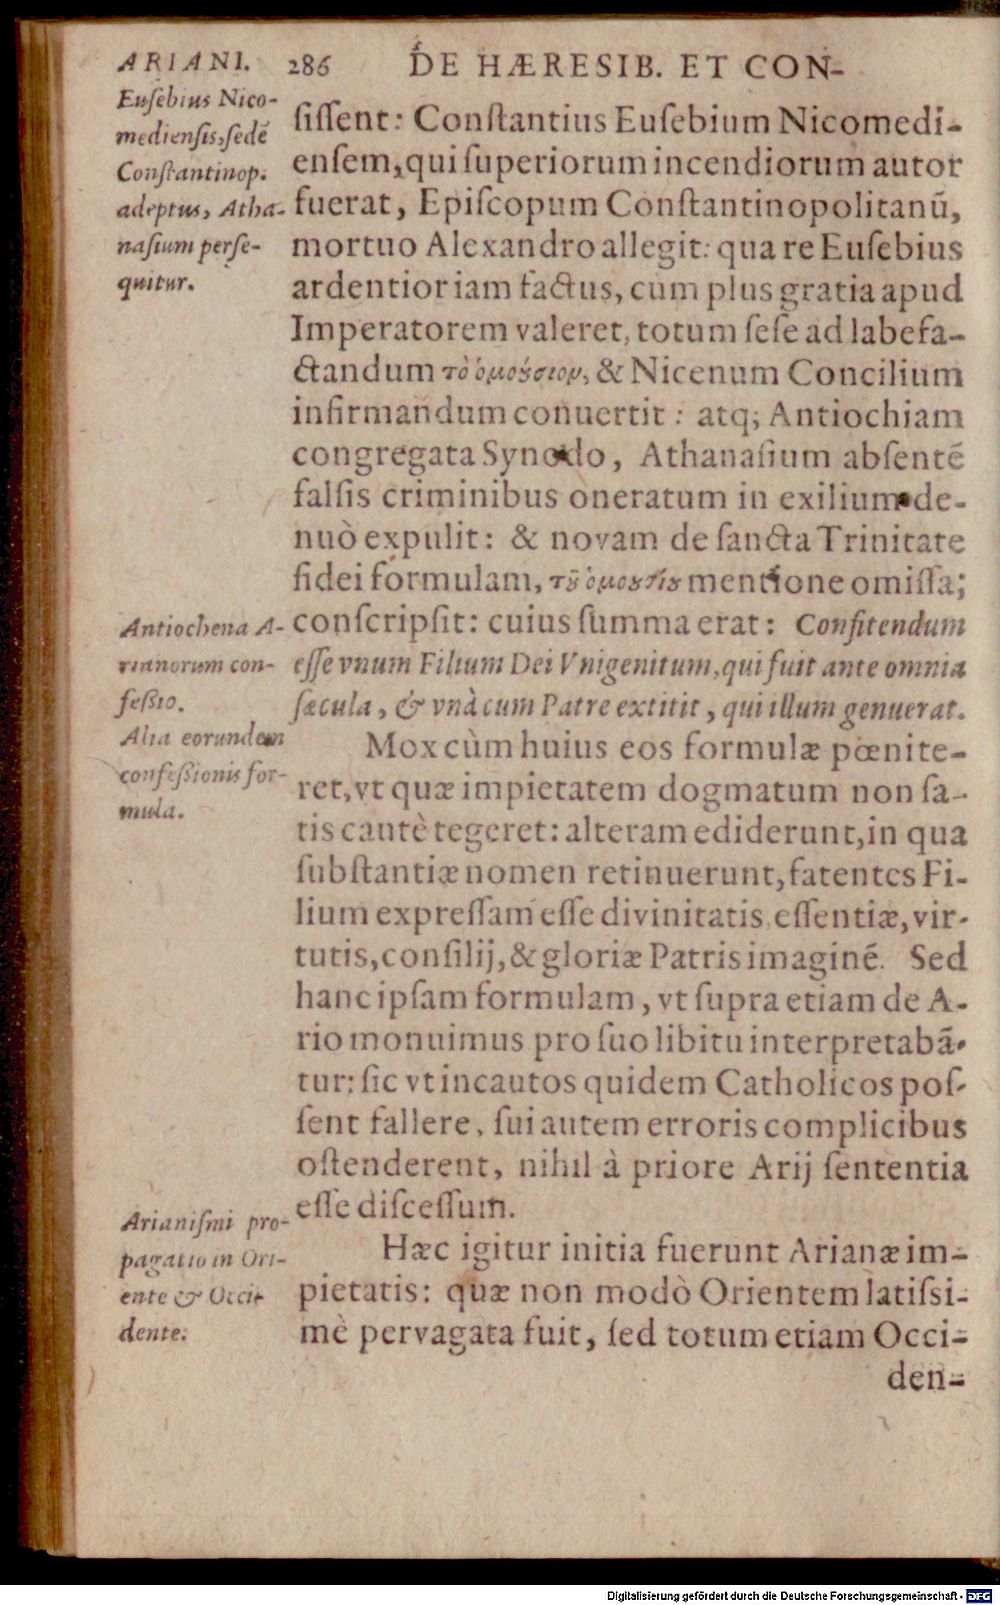 ARIANI. 286 DE HÆRESIB. ET CON-
Euſebius Nico-
medienſis, ſedē
Conſtantinop.
adeptus, Atha-
naſium perſe-
quitur.
ſiſſent: Conſtantius Euſebium Nicomedi-
enſem, qui ſuperiorum incendiorum autor
fuerat, Epiſcopum Conſtantinopolitanū,
mortuo Alexandro allegit: qua re Euſebius
ardentior iam factus, cùm plus gratia apud
Imperatorem valeret, totum ſeſe ad labefa-
ctandum τὸ ὁμούσιον, & Nicenum Concilium
infirmandum conuertit: atq; Antiochiam
congregata Synodo, Athanaſium abſentē
falſis criminibus oneratum in exilium de-
nuò expulit: & novam de ſancta Trinitate
fidei formulam, τȣ̃ ὁμοȣσίȣ mentione omiſſa;
conſcripſit: cuius ſumma erat: Confitendum
eſſe vnum Filium Dei Vnigenitum, qui fuit ante omnia
ſæcula, & vnà cum Patre extitit, qui illum genuerat.
Antiochena A-
rianorum con-
feſsio.
Alia eorundem
confeſsionis for-
mula.
Mox cùm huius eos formulæ pœnite-
ret, vt quæ impietatem dogmatum non ſa-
tis cautè tegeret: alteram ediderunt, in qua
ſubſtantiæ nomen retinuerunt, fatentes Fi-
lium expreſſam eſſe divinitatis, eſſentiæ, vir-
tutis, conſilij, & gloriæ Patris imaginē. Sed
hanc ipſam formulam, vt ſupra etiam de A-
rio monuimus pro ſuo libitu interpretabā-
tur: ſic vt incautos quidem Catholicos poſ-
ſent fallere, ſui autem erroris complicibus
oſtenderent, nihil à priore Arij ſententia
eſſe diſceſſum.
Arianiſmi pro-
pagatio in Ori-
ente & Occi-
dente.
Hæc igitur initia fuerunt Arianæ im-
pietatis: quæ non modò Orientem latiſsi-
mè pervagata fuit, ſed totum etiam Occi-
den-
Digitalisierung gefördert durch die Deutsche Forschungsgemeinschaft - DFG